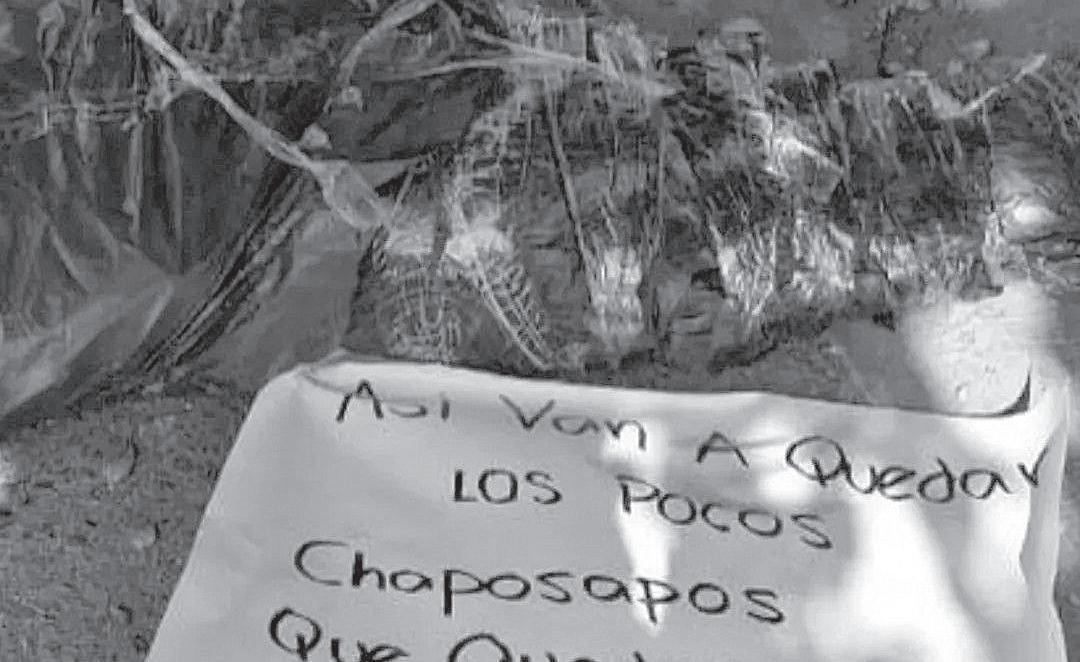 Asi Van A Quedar
LOS POCOS
Chaposapos
Que